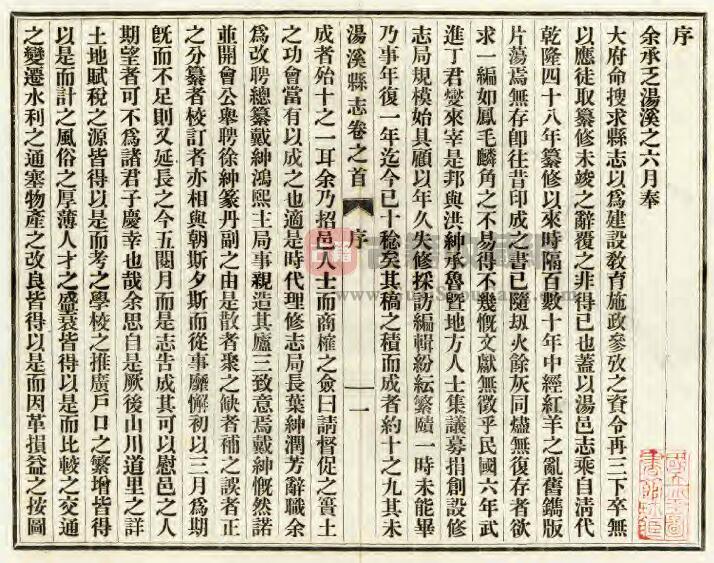 序
余承乏湯溪之六月奉
大府命搜求縣志以爲建設敎育施政參攷之資令再三下卒無
以應徒取纂修未竣之辭覆之非得已也蓋以湯邑志乘自淸代
乾隆四十八年纂修以來時隔百數十年中經紅羊之亂舊鐫版
片蕩焉無存卽往昔印成之書已隨刼火餘灰同燼無復存者欲
求一編如鳳毛麟角之不易得不幾慨文獻無徵乎民國六年武
進丁君燮來宰是邦與洪紳承魯暨地方人士集議募捐創設修
志局規模始具顧以年久失修採訪編輯紛紜繁賾一時未能畢
乃事年復一年迄今已十稔矣其稿之積而成者約十之九其未
湯溪縣志卷之首 序 一
成者殆十之一耳余乃招邑人士而商榷之僉曰請督促之簣土
之功會當有以成之也適是時代理修志局長葉紳潤芳辭職余
爲改聘總纂戴紳鴻熙主局事親造其廬三致意焉戴紳慨然諾
並開會公舉聘徐紳篆丹副之由是散者聚之缺者補之誤者正
之分纂者校訂者亦相與朝斯夕斯而從事靡懈初以三月爲期
旣而不足則又延長之今五閱月而是志吿成其可以慰邑之人
期望者可不爲諸君子慶幸也哉余思自是厥後山川道里之詳
土地賦稅之源皆得以是而考之學校之推廣戶口之繁增皆得
以是而計之風俗之厚薄人才之盛衰皆得以是而比較之交通
之變遷水利之通塞物產之改良皆得以是而因革損益之按圖